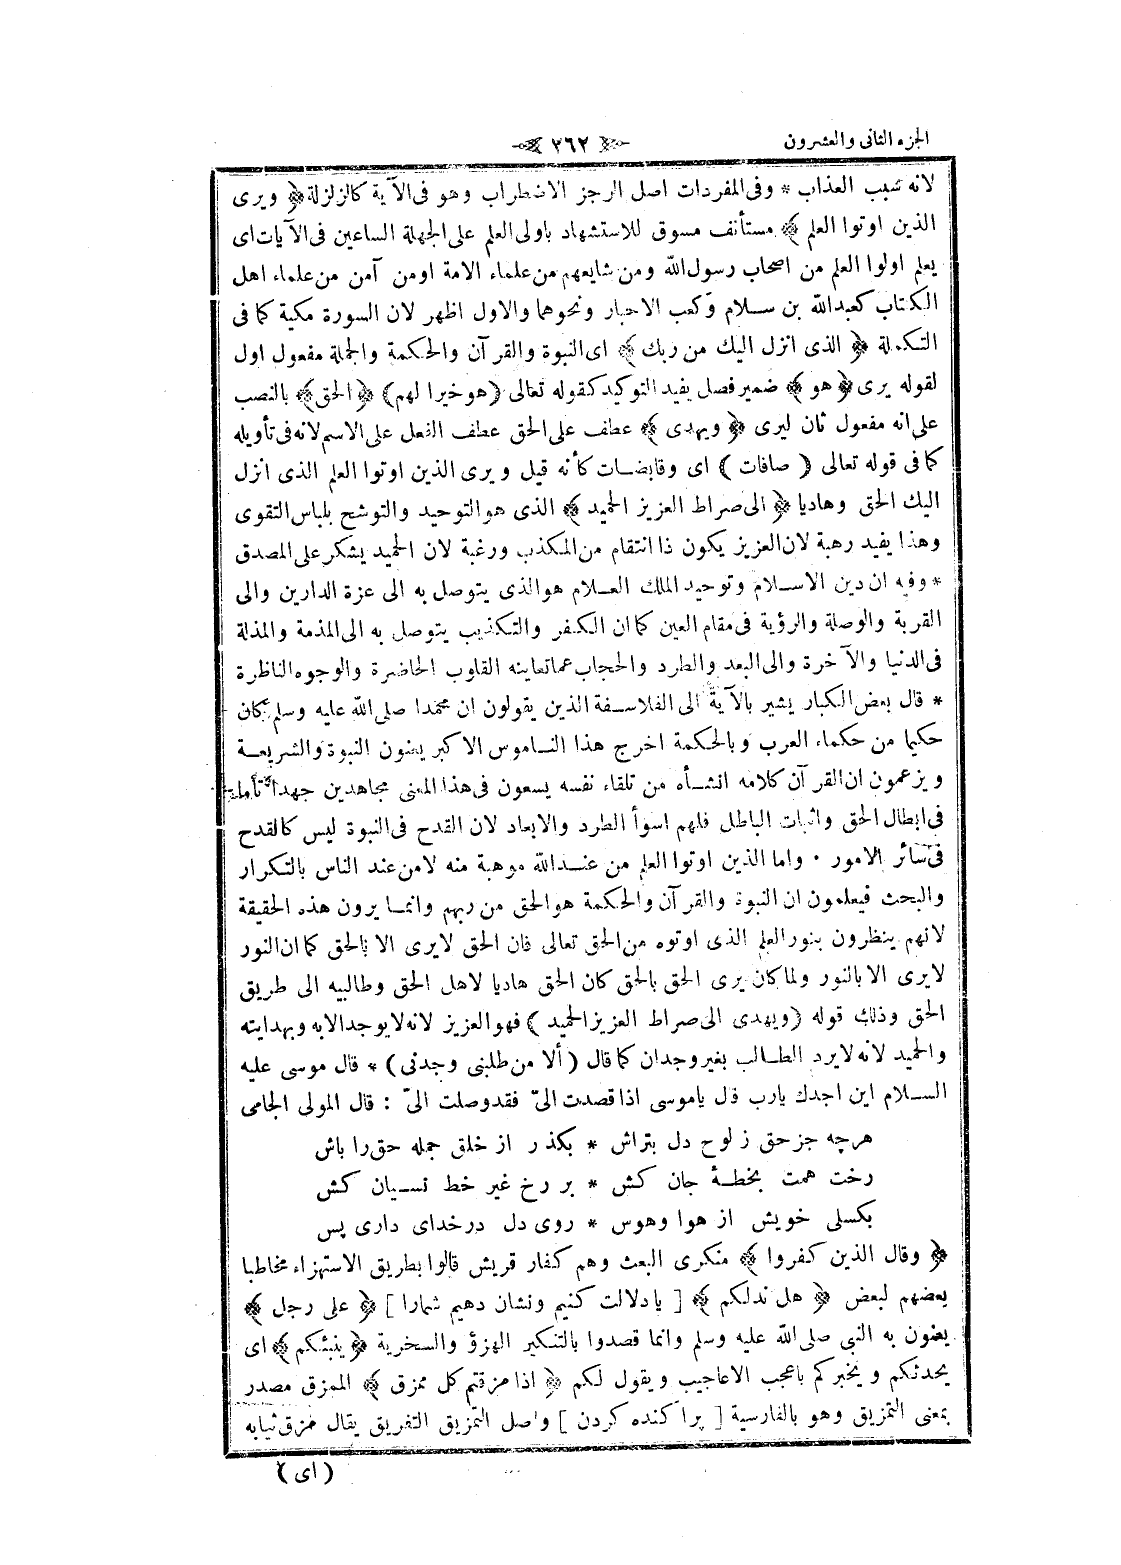 الجزء الثانى والعشرون
٢٦٢
لانه سبب العذاب * وفى المفردات اصل الرجز الاضطراب وهو فى الآية كالزلزلة ﴿ ويرى
الذين اوتوا العلم ﴾ مستأنف مسوق للاستشهاد باولى العلم على الجهلة الساعين فى الآيات اى
يعلم اولوا العلم من اصحاب رسول الله ومن شايعهم من علماء الامة اومن آمن من علماء اهل
الكتاب كعبدالله بن سلام وكعب الاحبار ونحوهما والاول اظهر لان السورة مكية كما فى
التكملة ﴿ الذى انزل اليك من ربك ﴾ اى النبوة والقرآن والحكمة والجملة مفعول اول
لقوله يرى ﴿ هو ﴾ ضمير فصل يفيد التوكيد كقوله تعالى (هو خيرا لهم) ﴿ الحق ﴾ بالنصب
على انه مفعول ثان ليرى ﴿ ويهدى ﴾ عطف على الحق عطف الفعل على الاسم لانه فى تأويله
كما فى قوله تعالى ( صافات ) اى وقابضات كأنه قيل ويرى الذين اوتوا العلم الذى انزل
اليك الحق وهاديا ﴿ الى صراط العزيز الحميد ﴾ الذى هو التوحيد والتوشح بلباس التقوى
وهذا يفيد رهبة لان العزيز يكون ذا انتقام من المكذب ورغبة لان الحميد يشكر على المصدق
* وفيه ان دين الاسلام وتوحيد الملك العلام هو الذى يتوصل به الى عزة الدارين والى
القربة والوصلة والرؤية فى مقام العين كما ان الكفر والتكذيب يتوصل به الى المذمة والمذلة
فى الدنيا والآخرة والى البعد والطرد والحجاب عما تعاينه القلوب الحاضرة والوجوه الناظرة
* قال بعض الكبار يشير بالآية الى الفلاسفة الذين يقولون ان محمدا صلى الله عليه وسلم كان
حكيما من حكماء العرب وبالحكمة اخرج هذا الناموس الاكبر يعنون النبوة والشريعة
ويزعمون ان القرآن كلامه انشأه من تلقاء نفسه يسعون فى هذا المعنى مجاهدين جهدا تاما
فى ابطال الحق واثبات الباطل فلهم اسوأ الطرد والابعاد لان القدح فى النبوة ليس كالقدح
فى سائر الامور . واما الذين اوتوا العلم من عند الله موهبة منه لا من عند الناس بالتكرار
والبحث فيعلمون ان النبوة والقرآن والحكمة هو الحق من ربهم وانما يرون هذه الحقيقة
لانهم ينظرون بنور العلم الذى اوتوه من الحق تعالى فان الحق لا يرى الا بالحق كما ان النور
لا يرى الا بالنور ولما كان يرى الحق بالحق كان الحق هاديا لاهل الحق وطالبيه الى طريق
الحق وذلك قوله (ويهدى الى صراط العزيز الحميد) فهو العزيز لانه لا يوجد الا به وبهدايته
والحميد لانه لا يرد الطالب بغير وجدان كما قال (ألا من طلبنى وجدنى) * قال موسى عليه
السلام اين اجدك يارب قال ياموسى اذا قصدت الىّ فقد وصلت الىّ : قال المولى الجامى
هرچه جز حق ز لوح دل بتراش * بكذر از خلق جمله حق را باش
رخت همت بخطۀ جان كش * بر رخ غير خط نسيان كش
بكسلى خويش از هوا وهوس * روى دل درخداى دارى پس
﴿ وقال الذين كفروا ﴾ منكرى البعث وهم كفار قريش قالوا بطريق الاستهزاء مخاطبا
بعضهم لبعض ﴿ هل ندلكم ﴾ [ يا دلالت كنيم ونشان دهيم شمارا ] ﴿ على رجل ﴾
يعنون به النبى صلى الله عليه وسلم وانما قصدوا بالتنكير الهزؤ والسخرية ﴿ ينبئكم ﴾ اى
يحدثكم ويخبركم باعجب الاعاجيب ويقول لكم ﴿ اذا مزقتم كل ممزق ﴾ الممزق مصدر
بمعنى التمزيق وهو بالفارسية [ پراكنده كردن ] واصل التمزيق التفريق يقال مزق ثيابه
( اى )